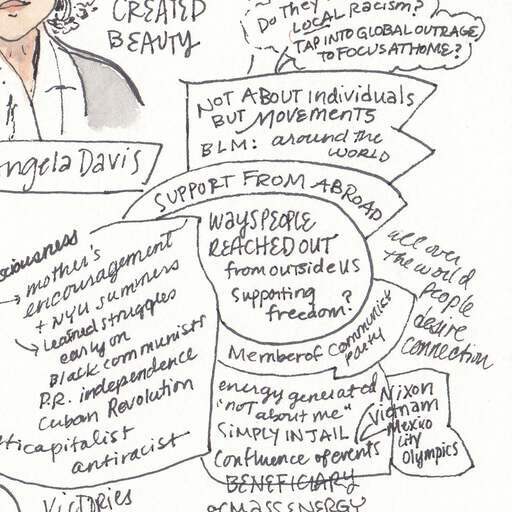 CREATED
BEAUTY
Do They
LOCAL RACISM?
TAP INTO GLOBAL OUTRAGE
TO FOCUS AT HOME?
NOT ABOUT individuals
BUT MOVEMENTS
BLM: around the
WORLD
ngela Davis
SUPPORT FROM ABROAD
WAYS PEOPLE
REACHED OUT
from outside US
supporting
freedom?
all over
the world
people
desire
connection
Member of Communist
party
ciousness
→ mother's
encouragement
+ NYU summers
→ Learned struggles
early on
Black communists
P.R. independence
Cuban Revolution
ticapitalist
antiracist
energy generated
"not about me"
SIMPLY IN JAIL
Confluence of events
BENEFICIARY
of MASS ENERGY
Nixon
Vietnam
Mexico
City
Olympics
VICTORIES